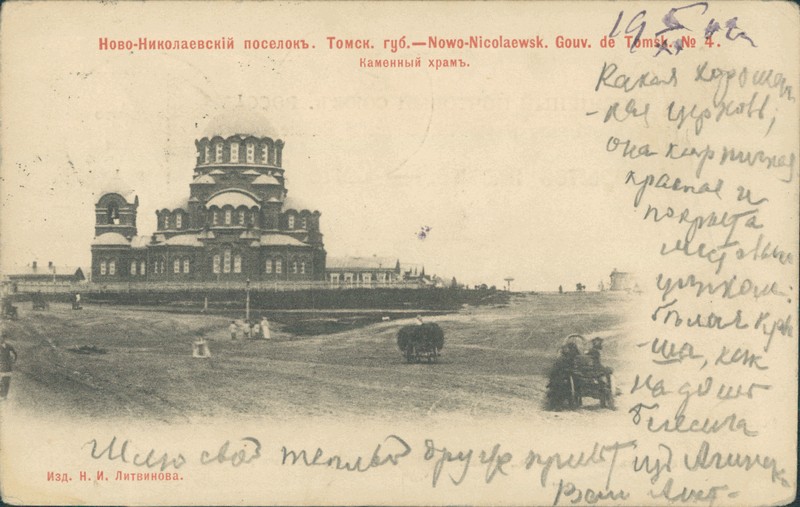 Ново-Николаевскій поселокъ. Томск. губ.—Nowo-Nicolaewsk. Gouv. de Tomsk. № 4.
Каменный храмъ.
Какая хорошень
-кая церковь,
она кирпичная
красная и
покрыта
листовым
цинком:
белая кры
-ша, как
на дом
Шлю свой теплый друже привет из
Изд. Н. И. Литвинова.